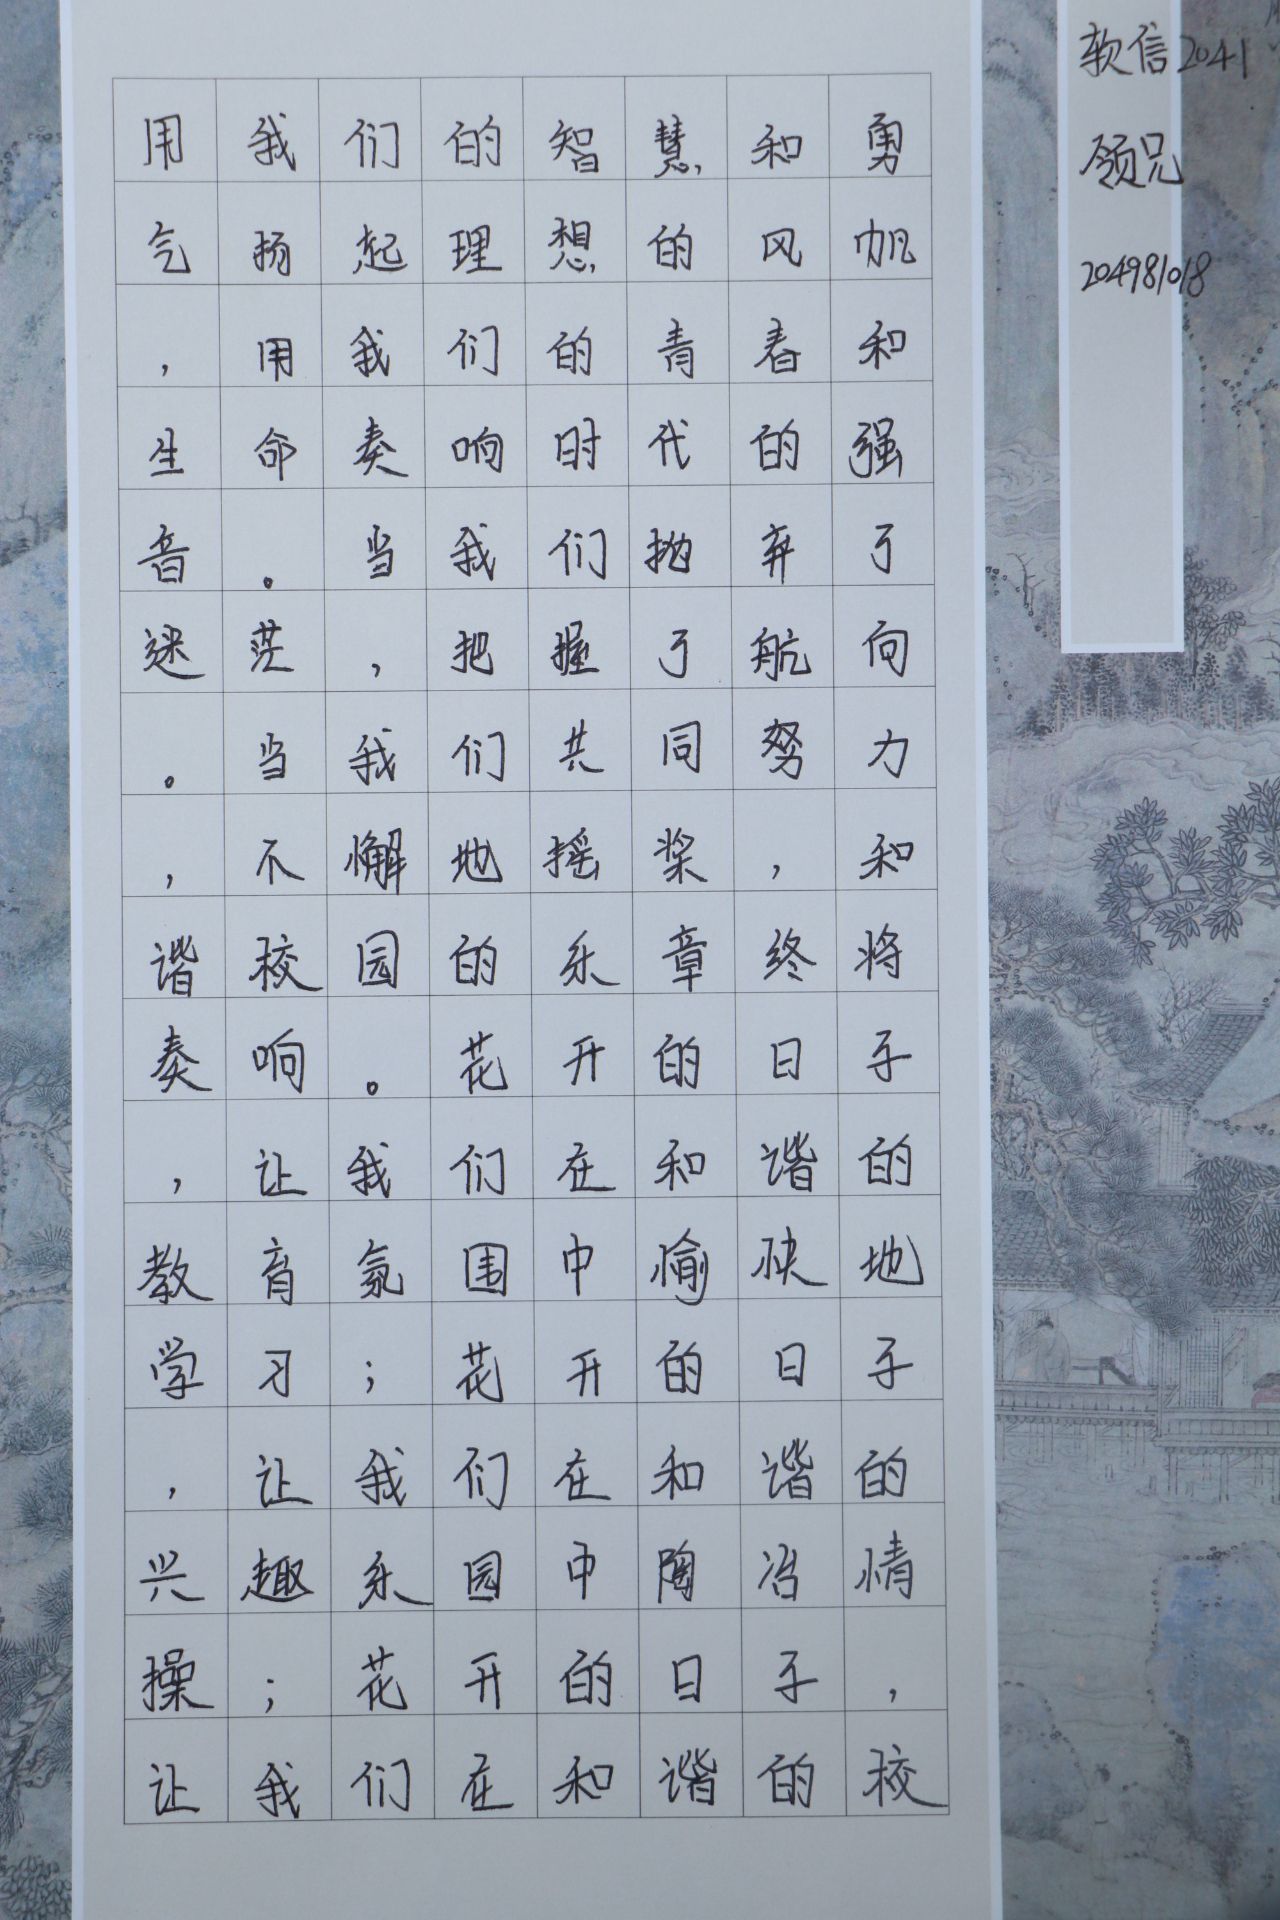 用我们的智慧和勇
气扬起理想的风帆
，用我们的青春和
生命奏响时代的强
音。当我们抛弃了
迷茫，把握了航向
。当我们共同努力
，不懈地摇桨，和
谐校园的乐章终将
奏响。花开的日子
，让我们在和谐的
教育氛围中愉快地
学习；花开的日子
，让我们在和谐的
兴趣乐园中陶冶情
操；花开的日子，
让我们在和谐的校
软信2041
领兄
204981018